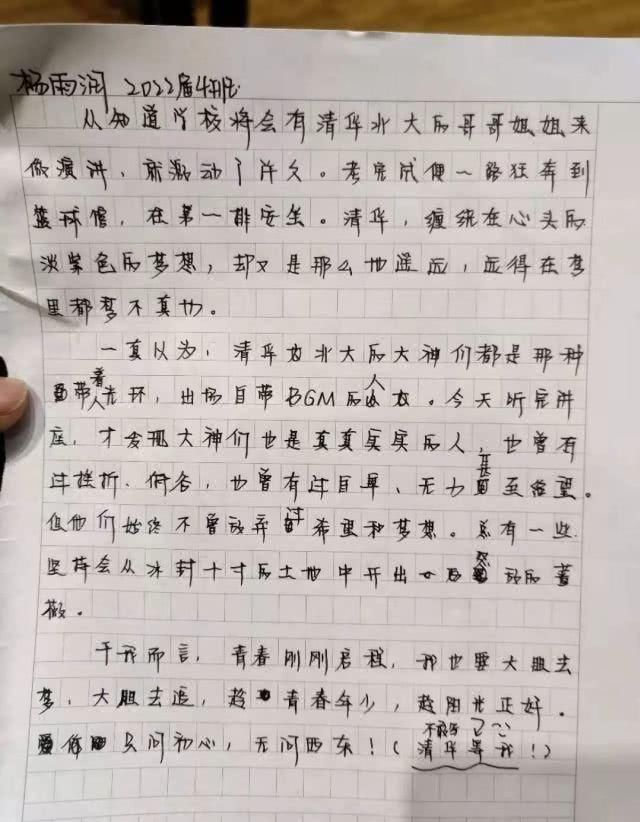 杨雨润 2022届4班
从知道学校将会有清华北大的哥哥姐姐来
做演讲，就激动了许久。考完试便一路狂奔到
篮球馆，在第一排安坐。清华，缠绕在心头的
淡紫色的梦想，却又是那么地遥远，远得在梦
里都梦不真切。
一直以为，清华北大的大神们都是那种
带着光环，出场自带BGM的人。今天听完讲
座，才发现大神们也是真真实实的人，也曾有
过挫折、彷徨，也曾有过自卑、无力甚至绝望。
但他们始终不曾放弃过希望和梦想。总有一些
坚持会从冰封十寸的土地中开出的蔷
薇。
于我而言，青春刚刚启程，我也要大胆去
梦，大胆去追，趁青春年少，趁阳光正好。
只问初心，无问西东！（清华等我！）